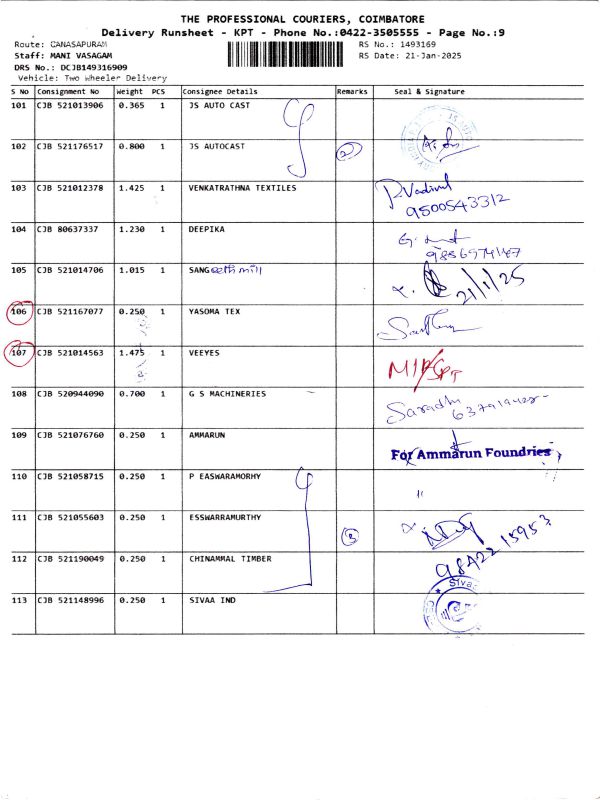 THE PROFESSIONAL COURIERS, COIMBATORE
Delivery Runsheet - KPT - Phone No.:0422-3505555 - Page No.:9
Route: CANASAPURAM RS No.: 1493169
Staff: MANI VASAGAM RS Date: 21-Jan-2025
DRS No.: DCJB149316909
Vehicle: Two Wheeler Delivery
S No Consignment No Weight PCS Consignee Details Remarks Seal & Signature
101 CJB 521013906 0.365 1 JS AUTO CAST
102 CJB 521176517 0.800 1 JS AUTOCAST 2
103 CJB 521012378 1.425 1 VENKATRATHNA TEXTILES P. Vadivel
9500543312
104 CJB 80637337 1.230 1 DEEPIKA
105 CJB 521014706 1.015 1 SANGeeth mill 21/1/25
106 CJB 521167077 0.250 1 YASOMA TEX
107 CJB 521014563 1.475 1 VEEYES
108 CJB 520944090 0.700 1 G S MACHINERIES Saradhi
109 CJB 521076760 0.250 1 AMMARUN For Ammarun Foundries
110 CJB 521058715 0.250 1 P EASWARAMORHY "
111 CJB 521055603 0.250 1 ESSWARRAMURTHY 3
98422 15953
112 CJB 521190049 0.250 1 CHINAMMAL TIMBER
113 CJB 521148996 0.250 1 SIVAA IND Siva